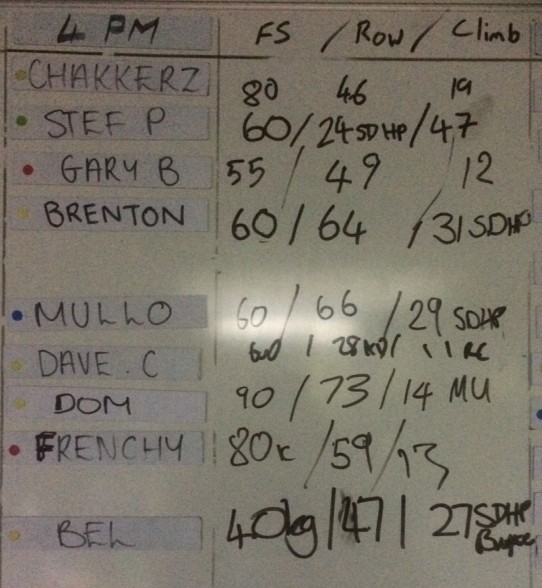 4 PM FS / Row / Climb
CHAKKERZ 80 46 19
STEF P 60/24SDHP/47
GARY B 55 / 49 / 12
BRENTON 60 / 64 / 31SDHP
MULLO 60 / 66 / 29 SDHP
DAVE.C 60 / 28 / 11 RC
DOM 90 / 73 / 14 MU
FRENCHY 80K /59/13
BEL 40kg /47/ 27SDHP